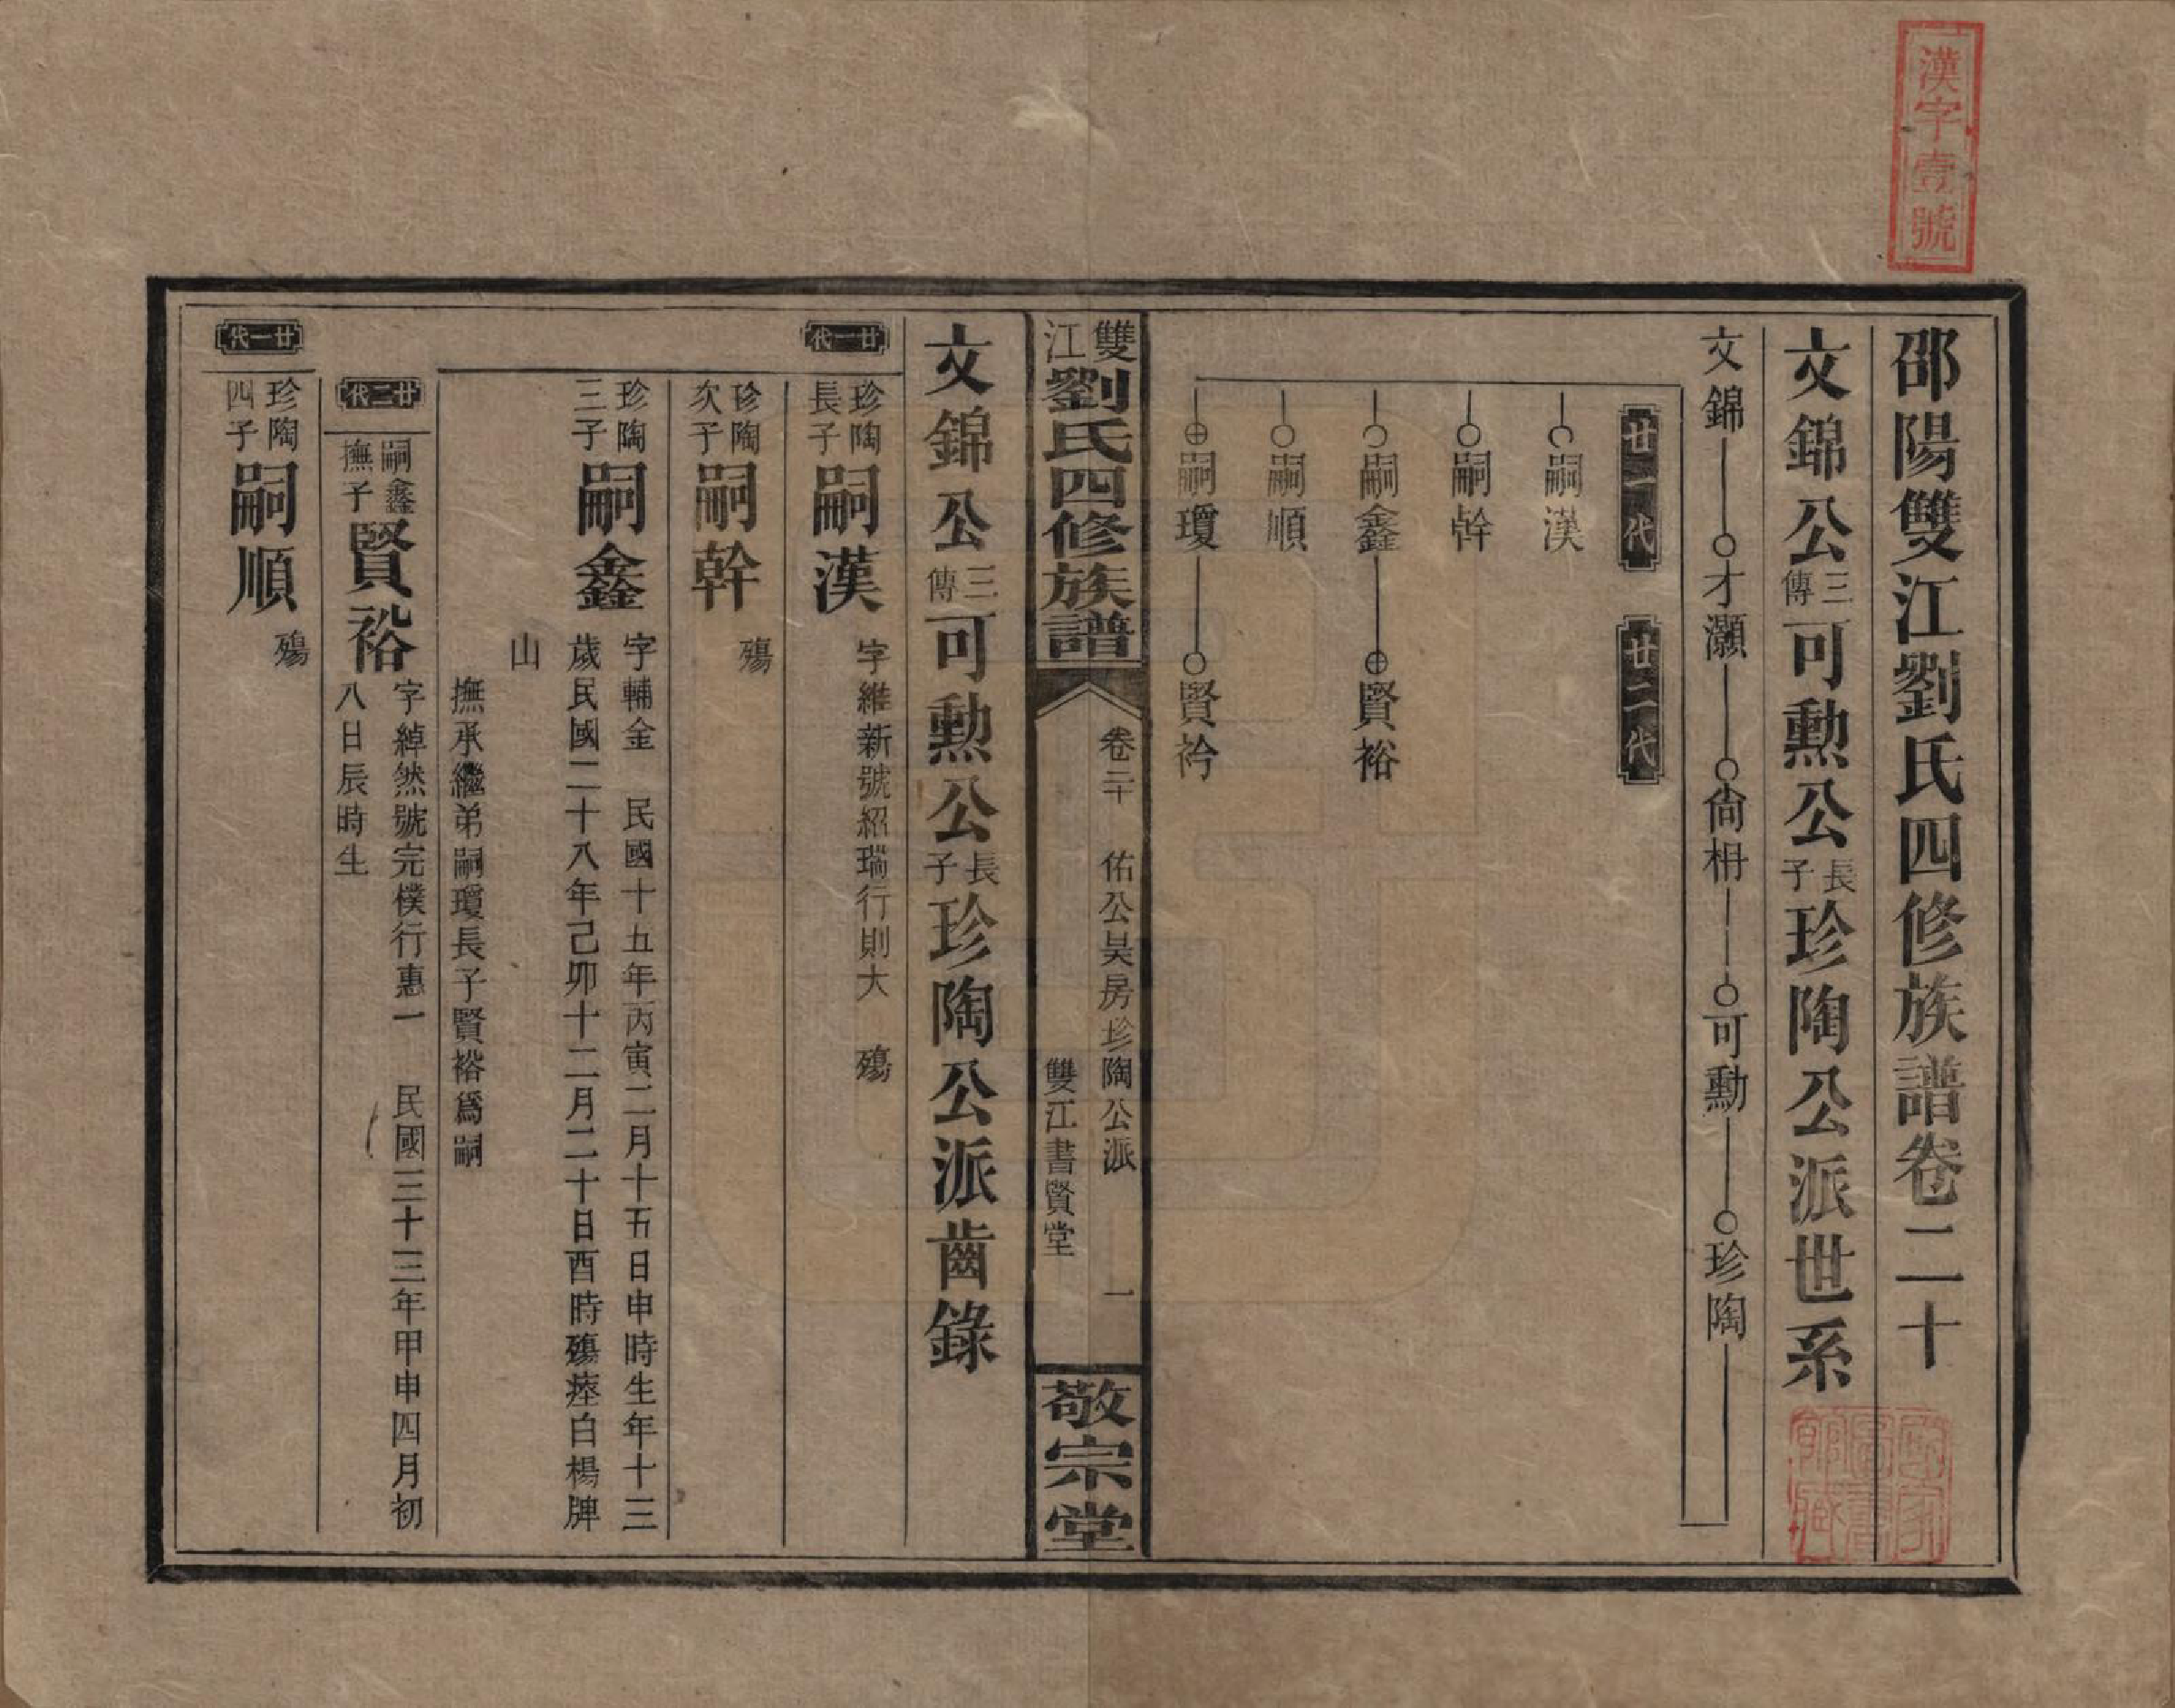 漢字壹號
邵陽雙江劉氏四修族譜卷二十
文錦公三傳可勳公長子珍陶公派世系
文錦 才灝 尙枏 可勳 珍陶
廿一代 廿二代
嗣漢
嗣幹
嗣鑫 賢裕
嗣順
嗣瓊 賢衿
雙江劉氏四修族譜
卷二十 佑公昊房珍陶公派 一
雙江書賢堂
敬宗堂
文錦公三傳可勳公長子珍陶公派齒錄
廿一代
珍陶長子嗣漢 字維新號紹瑞行則大 殤
珍陶次子嗣幹 殤
珍陶三子嗣鑫 字輔金 民國十五年丙寅二月十五日申時生年十三
歲民國二十八年己卯十二月二十日酉時殤瘞白楊牌
山
撫承繼弟嗣瓊長子賢裕爲嗣
廿二代
嗣鑫撫子賢裕 字綽然號完樸行惠一 民國三十三年甲申四月初
八日辰時生
廿一代
珍陶四子嗣順 殤